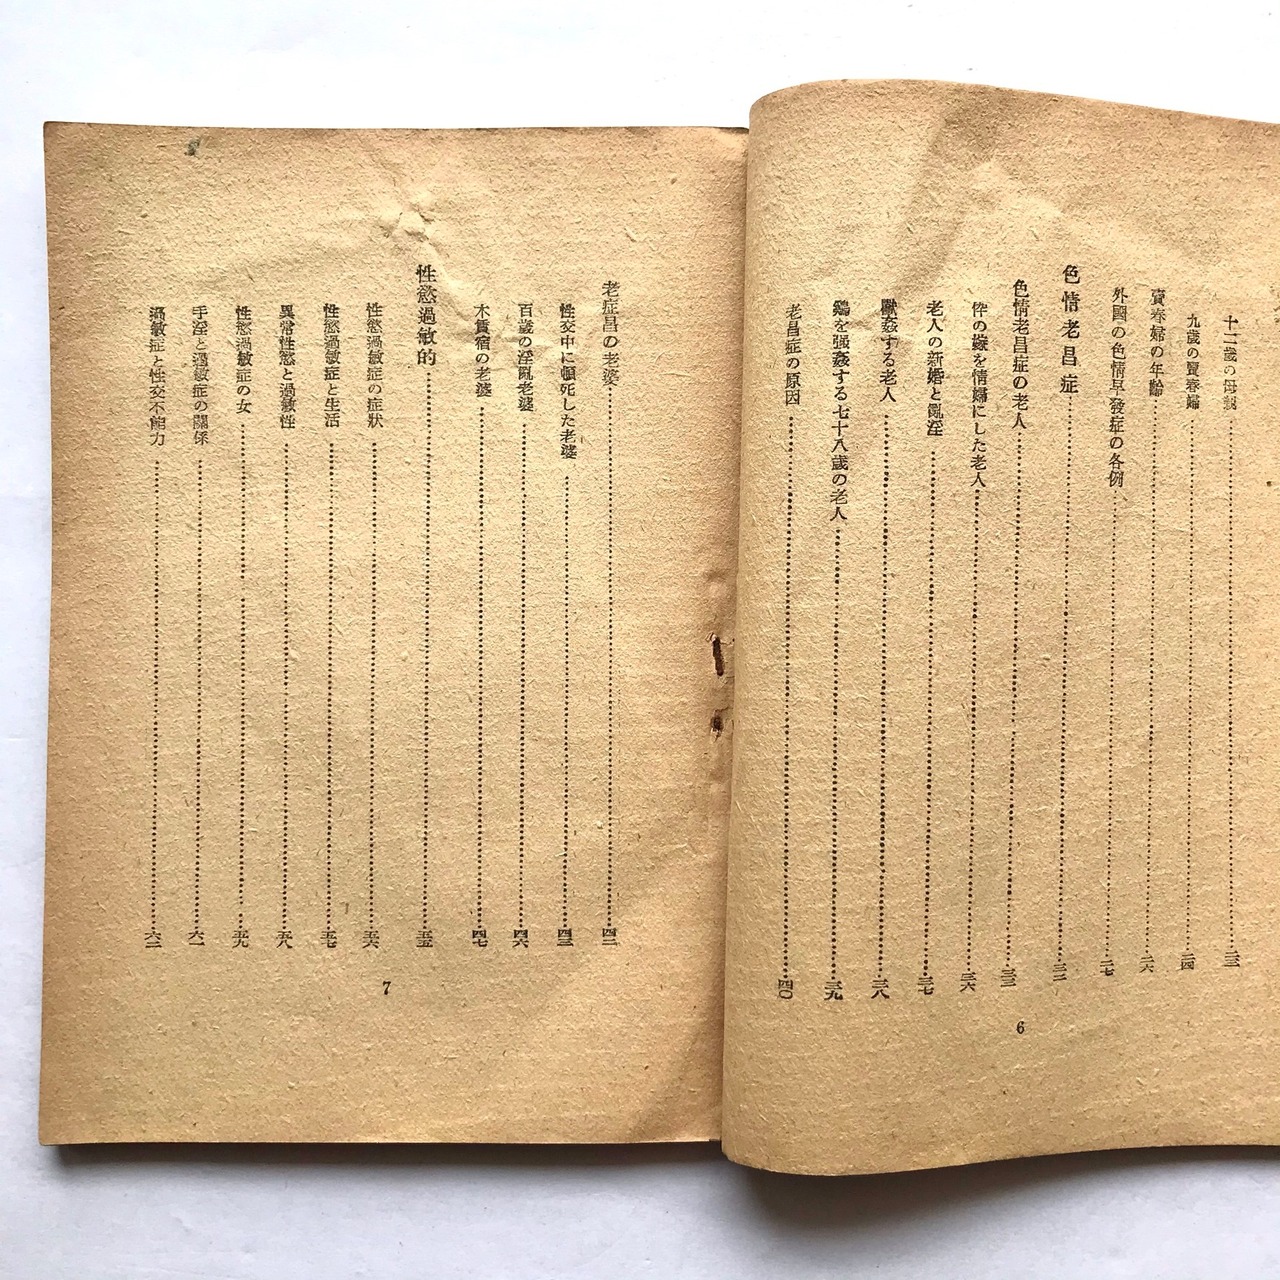 十二歳の母親……二三
九歳の賣春婦……二四
賣春婦の年齡……二六
外國の色情早發症の各例……二七
色情老昌症……三二
色情老昌症の老人……三三
伜の嫁を情婦にした老人……三六
老人の新婚と亂淫……三七
獸姦する老人……三八
鷄を强姦する七十八歳の老人……三九
老昌症の原因……四〇
6
老症昌の老婆……四二
性交中に頓死した老婆……四三
百歳の淫亂老婆……四六
木賃宿の老婆……四七
性慾過敏的……五五
性慾過敏症の症狀……五六
性慾過敏症と生活……五七
異常性慾と過敏性……五八
性慾過敏症の女……五九
手淫と過敏症の關係……六一
過敏症と性交不能力……六二
7